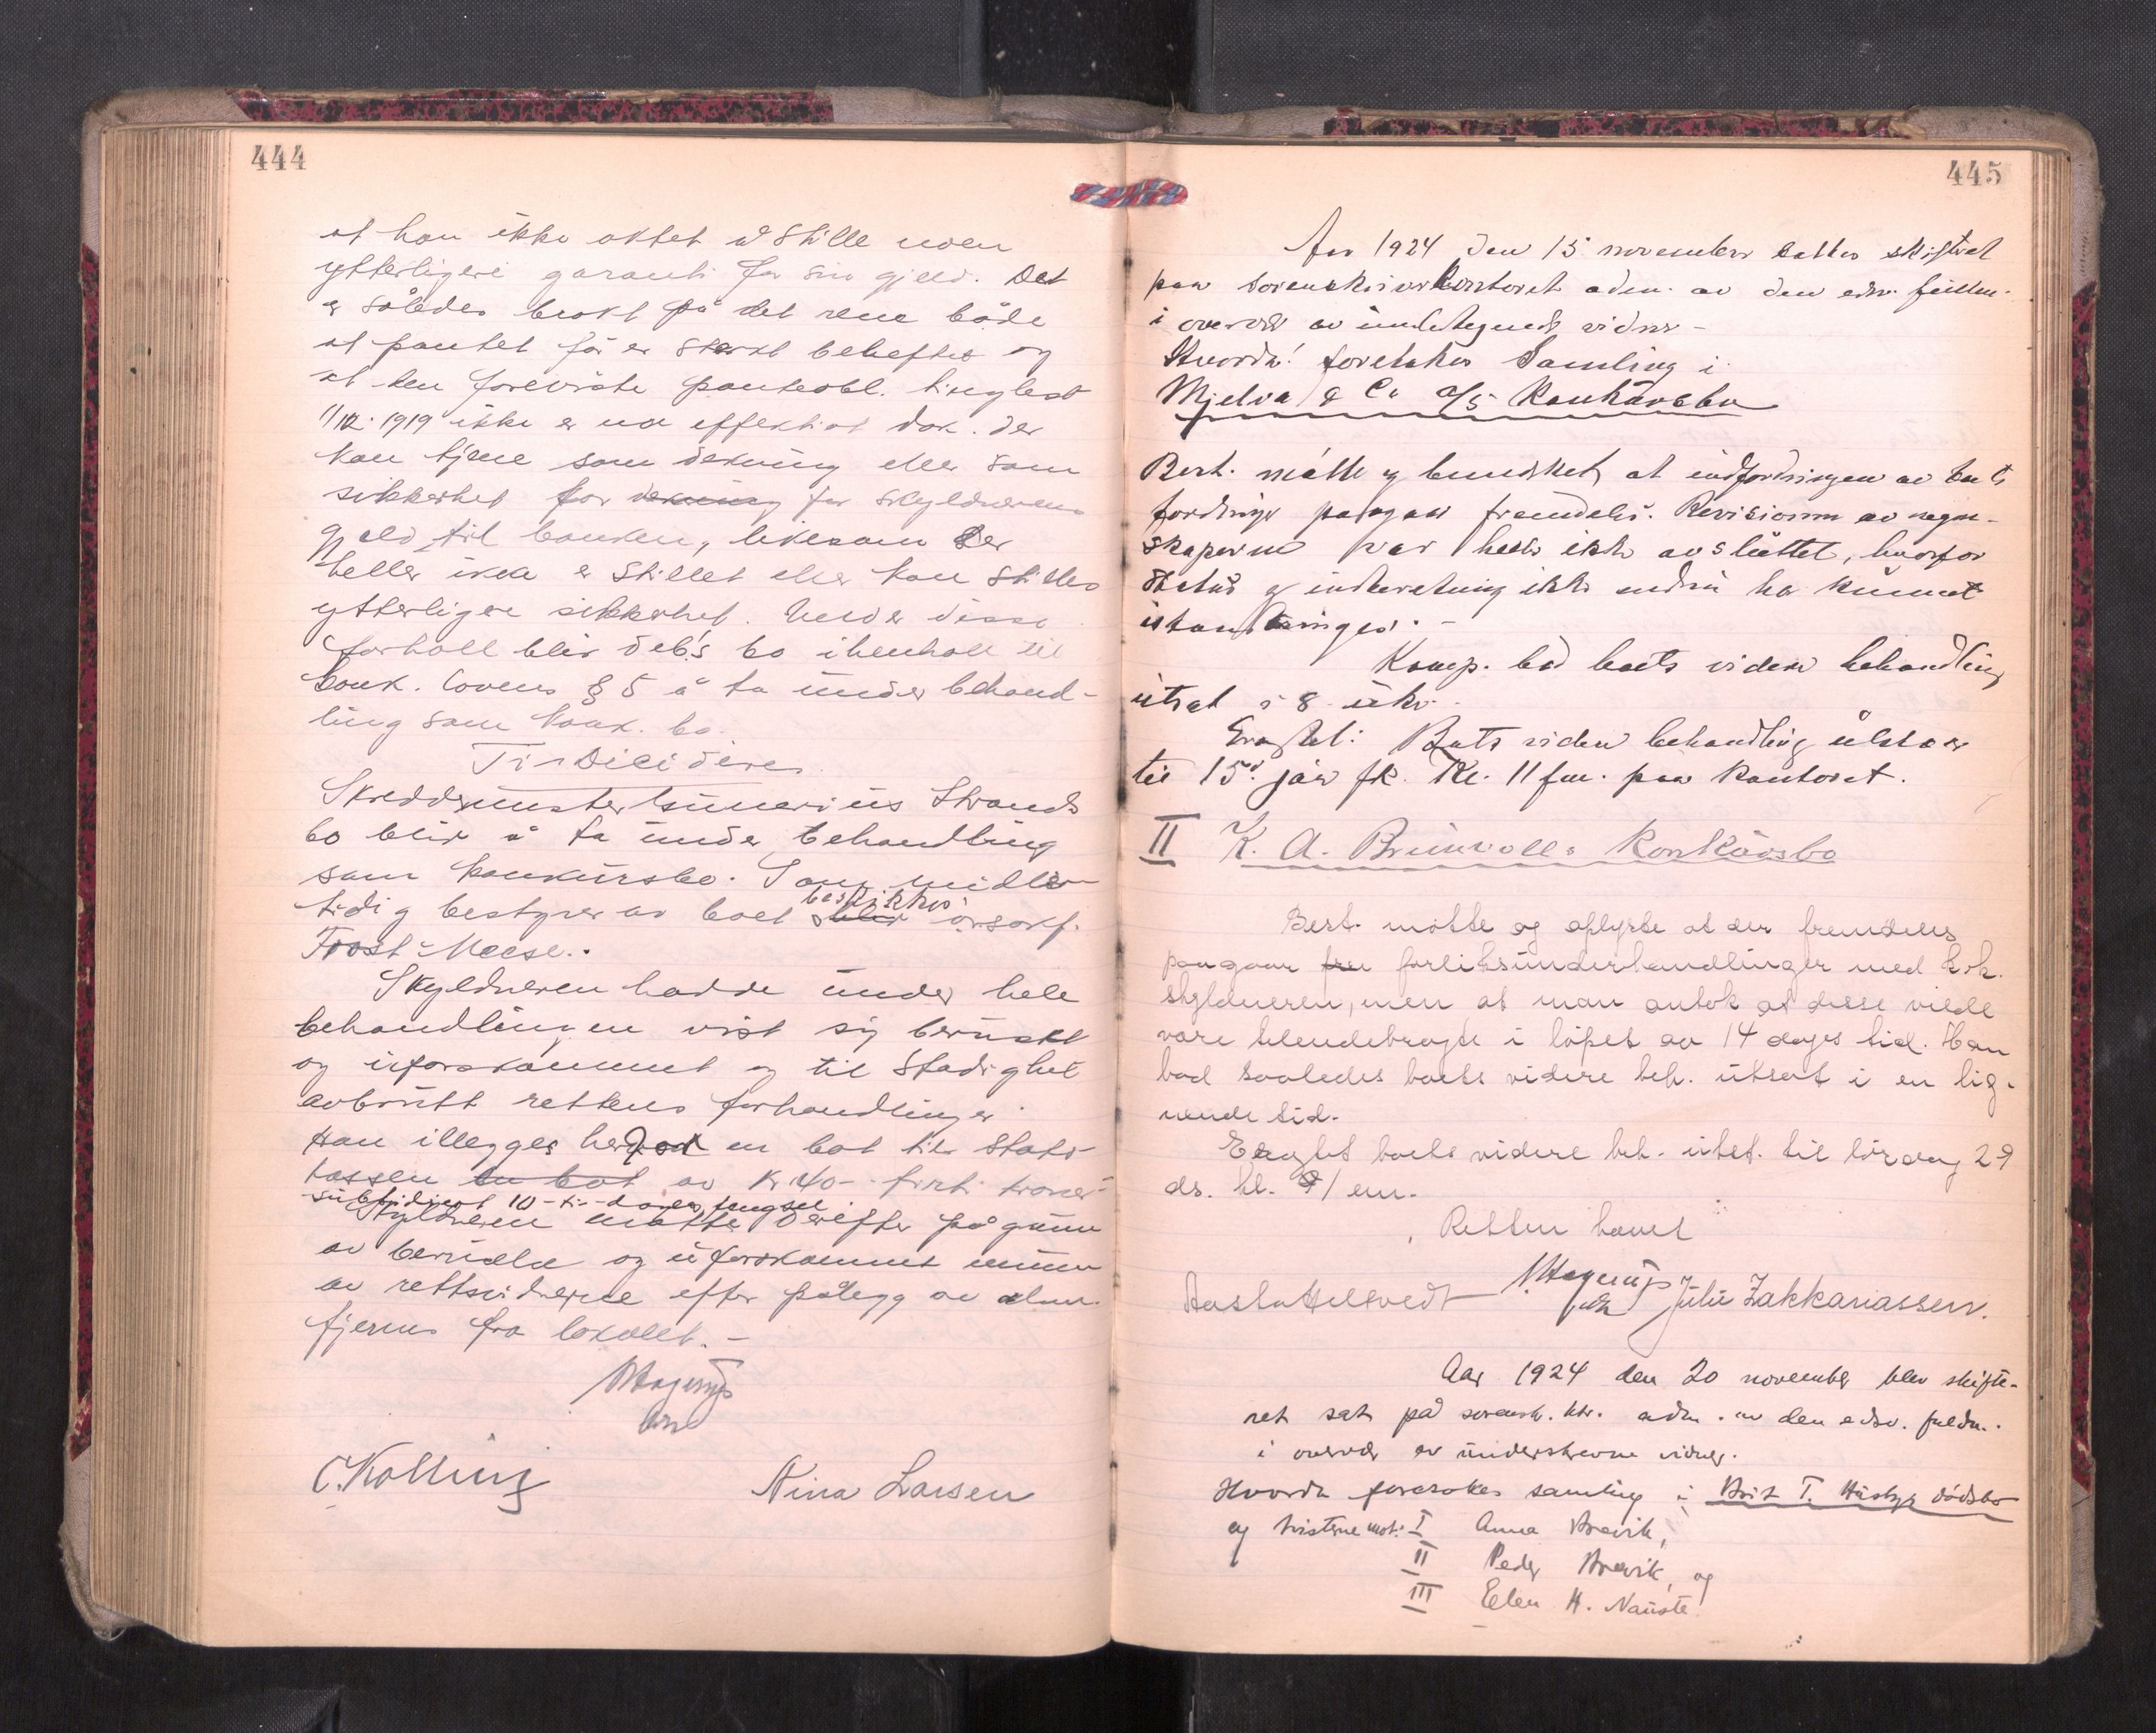 444
at han ikke aktet å stille noen
ytterligere garanti for sin gjeld. Det
er således brakt på det rene både
at pantet før er sterkt beheftet og
at den foreviste panteobl. tinglest
1/12. 1919 ikke er noe effektivt dok. der
kan tjene som dekning eller som
sikkerhet for dekning for skyldnerens
gjeld til banken, likesom der
heller ikke er stillet eller kan stilles
ytterligere sikkerhet. Under disse
forhold blir deb's bo i henhold til
konk. lovens § 5 å ta under behand-
ling som konk. bo.
Ti decideres
Skreddermester Strands
bo blir å ta under behandling
som konkursbo. Som midler-
tidig bestyrer av boet blir beskikkes orsakf.
Frost-Meese.
Skyldneren hadde under hele
behandlingen vist sig beruset
og uforskammet og til stadighet
avbrutt rettens forhandlinger.
Han illegges herved en bot til Stats-
kassen en bot av Kr. 40- førti kroner-
subsidiert 10-ti-dages fengsel
Skyldneren måtte derefter på grunn
av beruselse og uforskammet
av rettsvidnerne efter pålegg av adm.
fjernes fra lokalet. -
MHagerup
C. Kolling
Nina Larsen
445
Aar 1924 den 15 november sattes skifteret
paa sorenskriverkontoret adm. av den edsv. fuldm.
i overvær av undertegnede vidner -
Hvorda! foretokes Samling i
Mjelva & Co A/S Konkursbo
Best. møtte og bemerket, at indfordringen av boets
fordringer paagaar fremdeles. Revisionen av regn-
skaperne var heller ikke avsluttet, hvorfor
status og indberetning ikke endnu ha kunnet
istandbringes. -
Komp. bad boets videre behandling
utsat i 8 uker.
Eragtet: Boets videre behandling utstaar
til 15d jan fk. Kl. 11 fm. paa kontoret.
II K. A. Brunvolls Konkursbo
Best. møtte og oplyste at der fremdeles
paagaar fre forliksunderhandlinger med
skyldneren, men at man antok at disse vilde
være tilendebragte i løpet av 14 dages tid. Han
bad saaledes boets videre beh. utsat i en lig-
nende tid.
Eragtet boets videre beh. utst. til lørdag 29
ds. kl. 1 em.
Retten hævet
Aasta Helsvedt MHagerup Julie Zakkariassen.
Aar 1924 den 20 november blev skifte-
ret sat på sorensk. ktr. adm. av den edsv. fuldm.
i overvær av underskrevne vidner.
Hvorda foretokes samling i Brit T. Husbys dødsbo
og tvisterne mot: I Anna Brevik,
II Peder Brevik, og
III Elen H. Nauste.